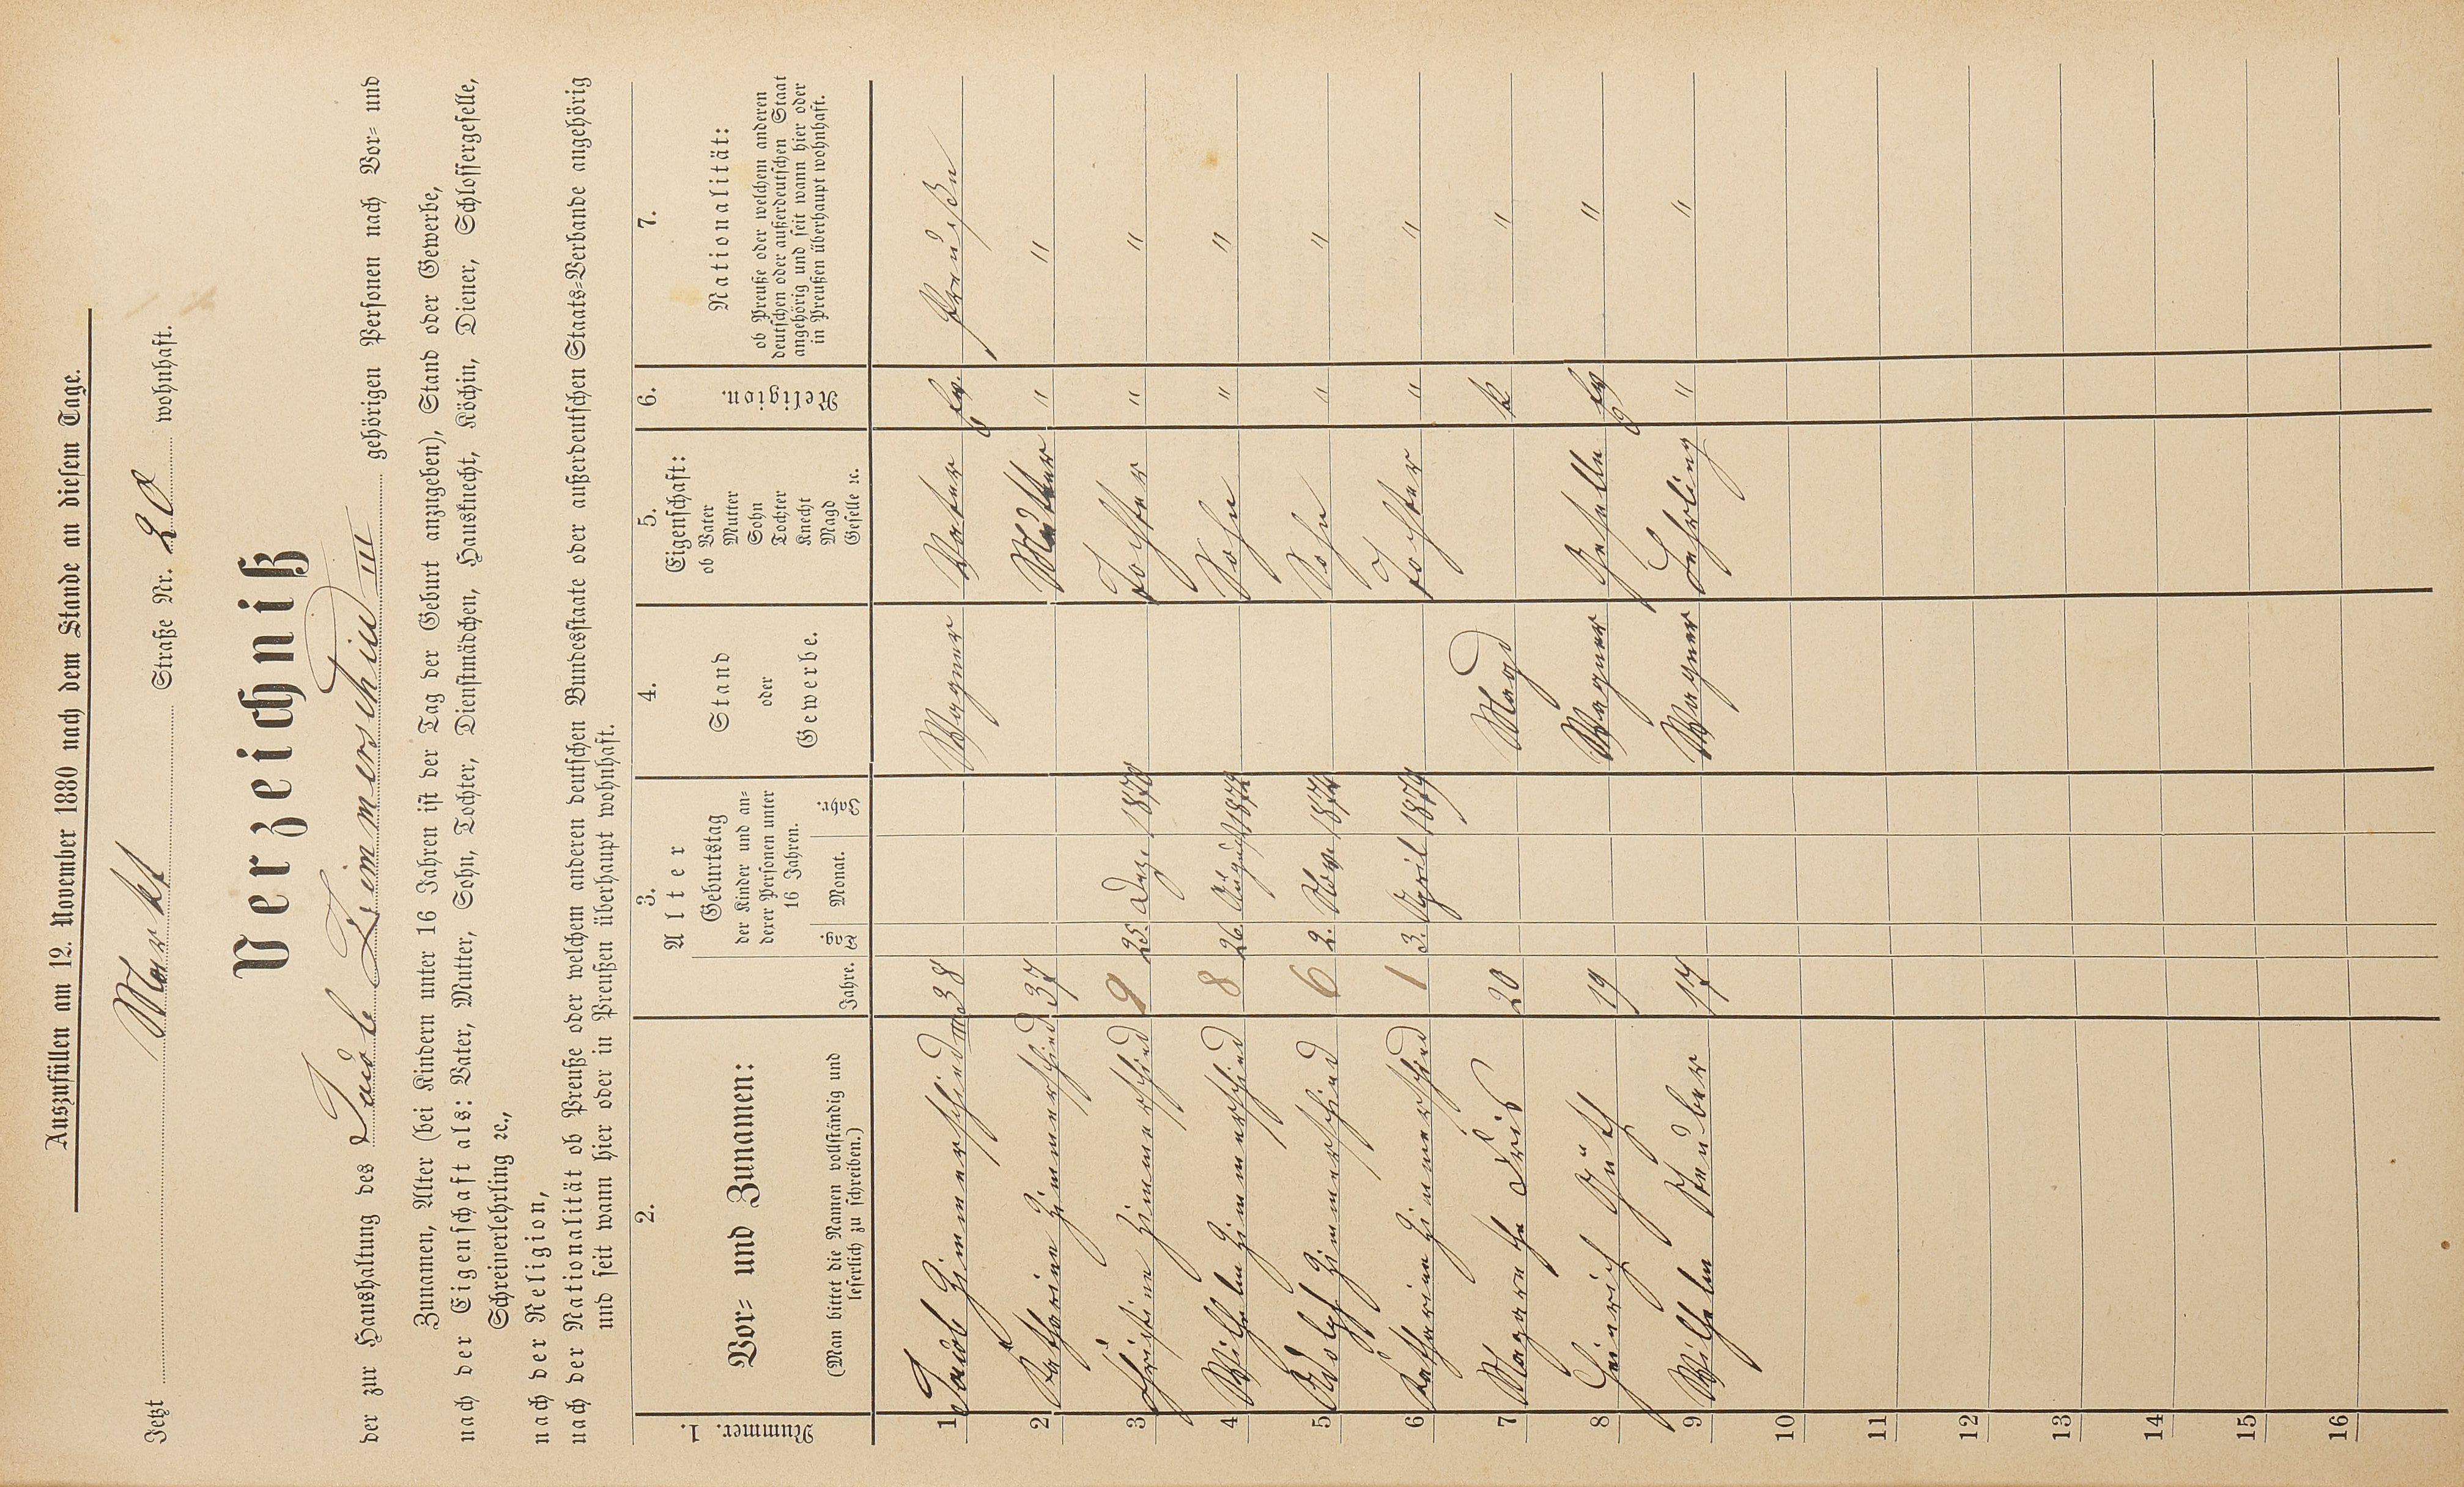 Auszufüllen am 12. November 1880 nach dem Stande an diesem Tage.
Jetzt Markt Straße Nr. 20 wohnhaft.
Verzeichniß
der zur Haushaltung des Jacob Zimmerschied III gehörigen Personen nach Vor- und
Zunamen, Alter (bei Kindern unter 16 Jahren ist der Tag der Geburt anzugeben), Stand oder Gewerbe,
nach der Eigenschaft als: Vater, Mutter, Sohn, Tochter, Dienstmädchen, Hausknecht, Köchin, Diener, Schlossergeselle,
Schreinerlehrling ꝛc.,
nach der Religion,
nach der Nationalität ob Preuße oder welchem anderen deutschen Bundesstaate oder außerdeutschen Staats-Verbande angehörig
und seit wann hier oder in Preußen überhaupt wohnhaft.
1. Nummer.
2. Vor- und Zunamen:
(Man bittet die Namen vollständig und
leserlich zu schreiben.)
3. Alter
Jahre.
Geburtstag
der Kinder und an-
derer Personen unter
16 Jahren.
Tag Monat. Jahr.
4. Stand
oder
Gewerbe.
5. Eigenschaft:
ob Vater
Mutter
Sohn
Tochter
Knecht
Magd
Geselle ꝛc.
6. Religion.
7. Nationalität:
ob Preuße oder welchem anderen
deutschen oder außerdeutschen Staat
angehörig und seit wann hier oder
in Preußen überhaupt wohnhaft.
1 Jacob Zimmerschied III 38 Wagner Vater Ev. Preuße
2 Katharine Zimmerschied 37 Mutter " "
3 Christine Zimmerschied 9 25. Dez. 1870 Tochter " "
4 Wilhelm Zimmerschied 8 26. August 1872 Sohn " "
5 Adolph Zimmerschied 6 2. Nov. 1874 Sohn " "
6 Katharine Zimmerschied 1 3. April 1879 Tochter " "
7 Magarethe 20 Magd k "
8 Heinrich 19 Wagner Geselle Ev "
9 Wilhelm Steuber 17 Wagner Lehrling " "
10
11
12
13
14
15
16